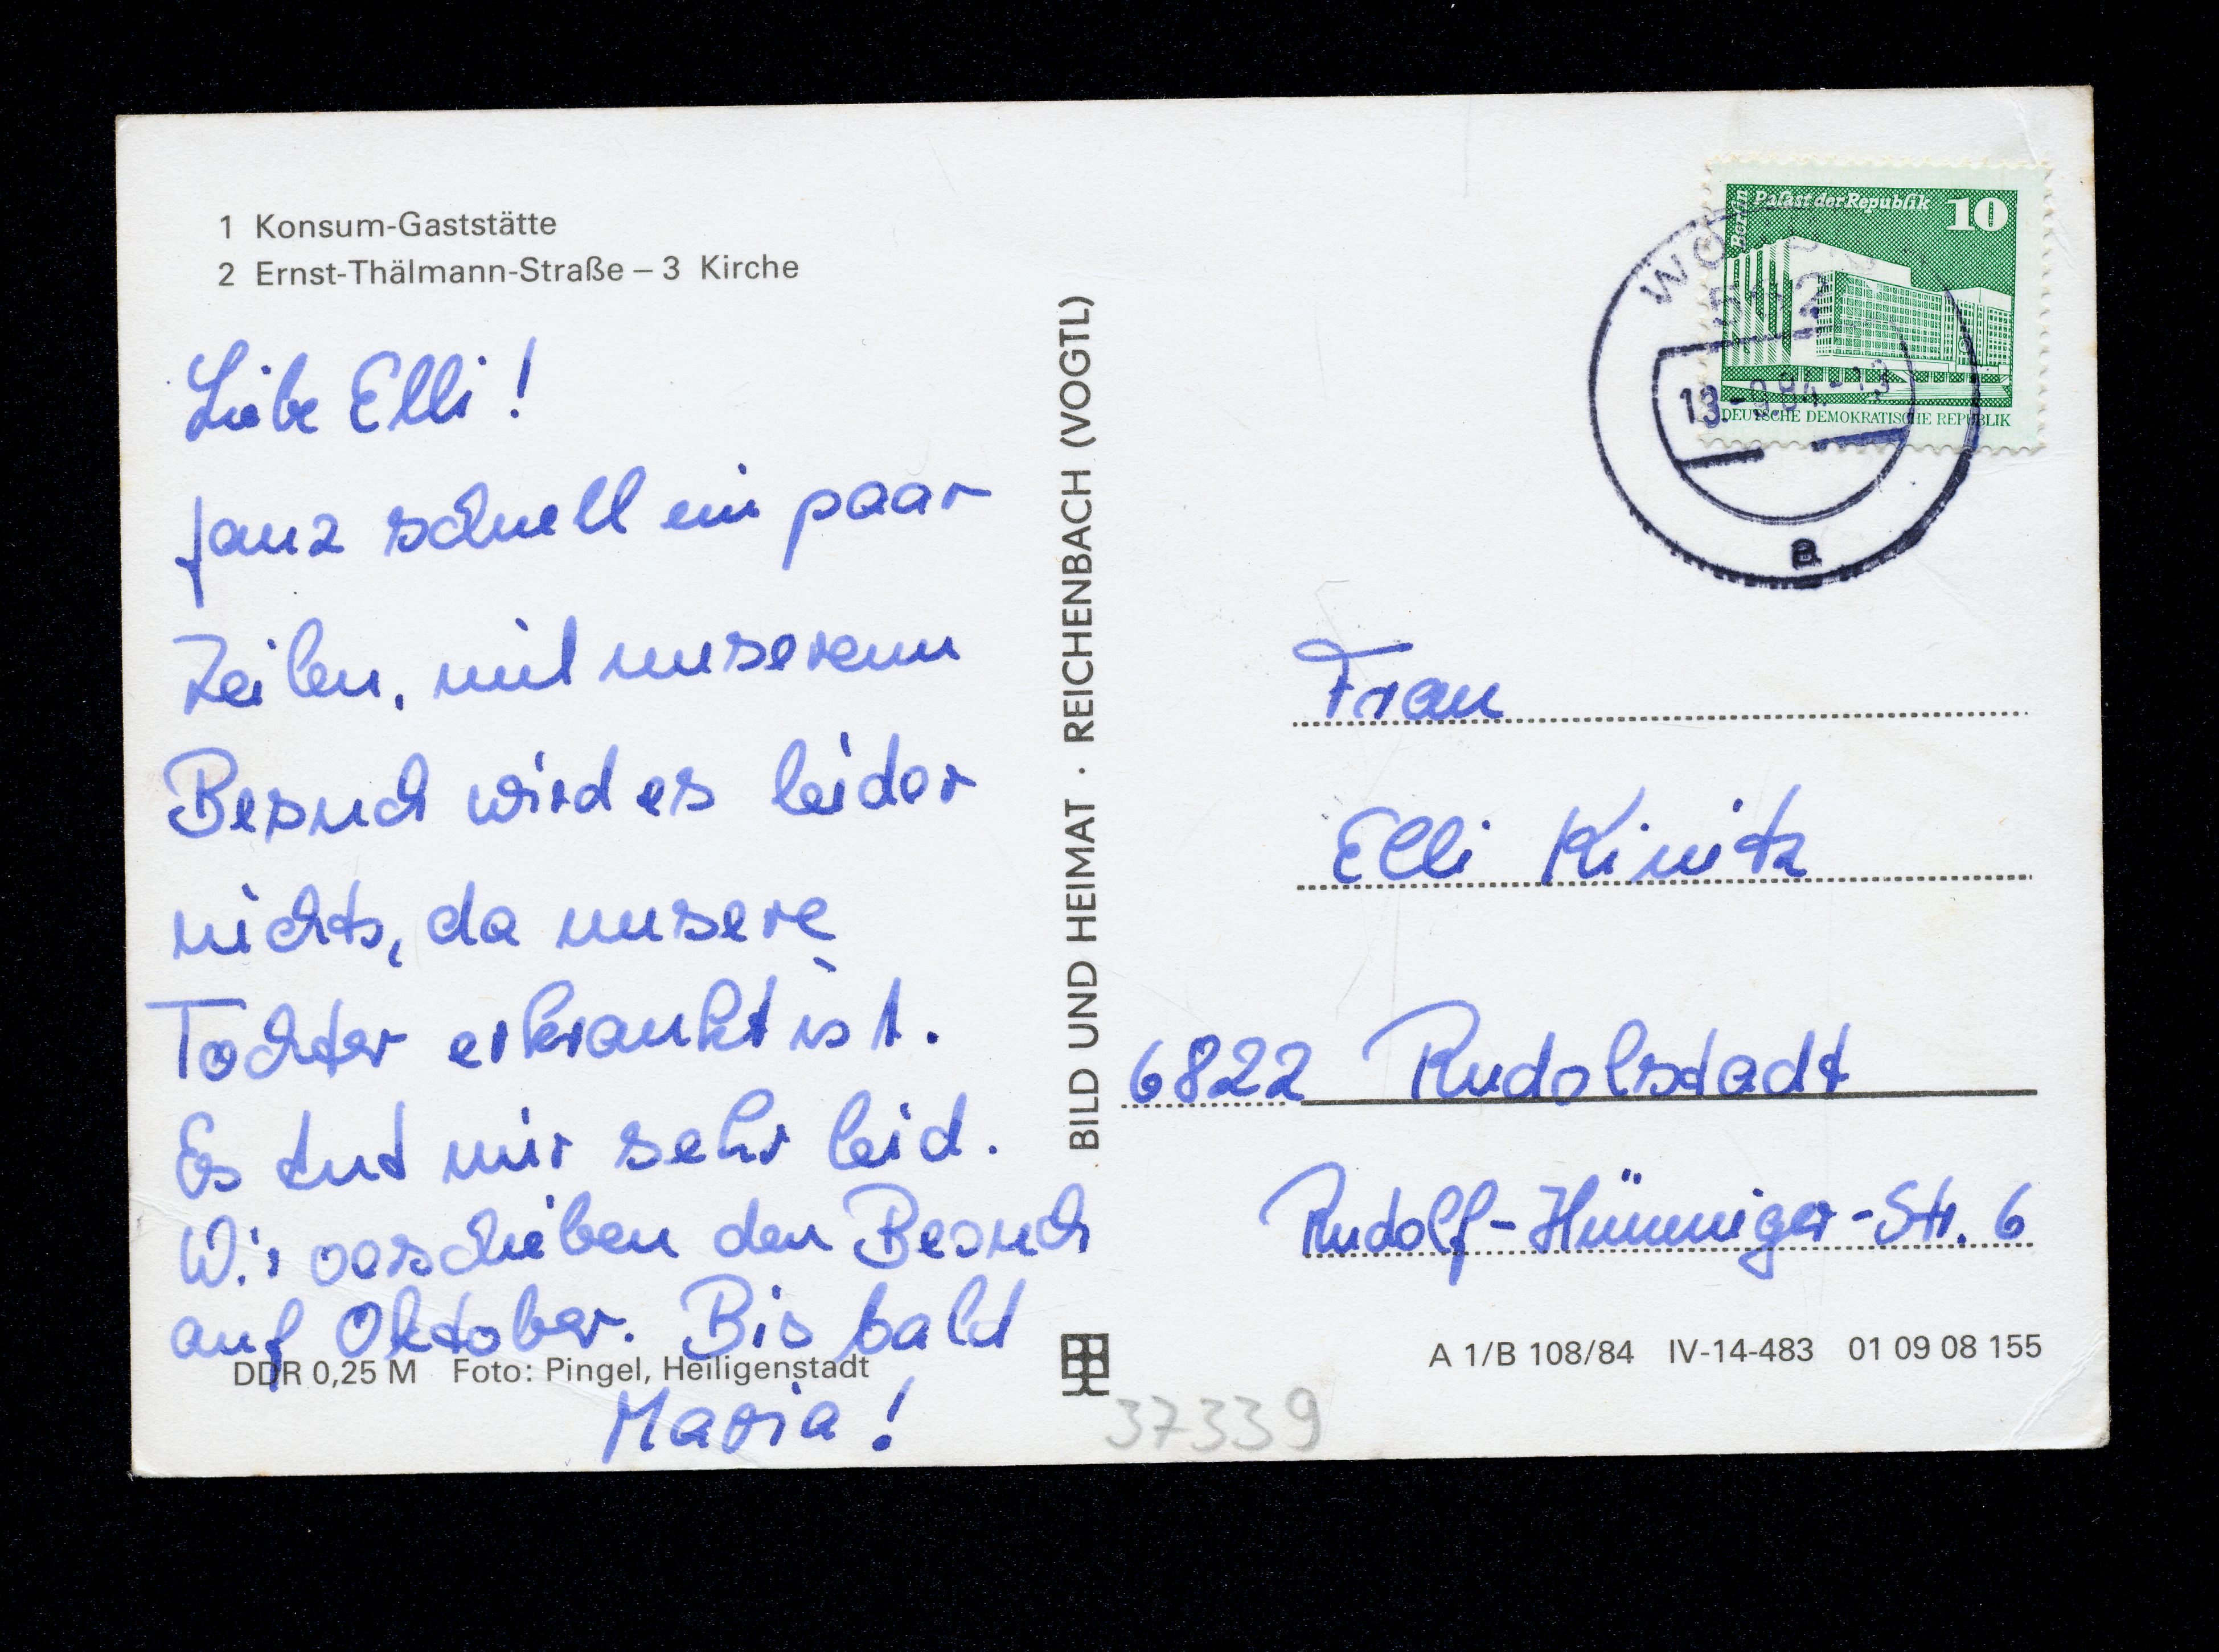 1 Konsum-Gaststätte
2 Ernst-Thälmann-Straße – 3 Kirche
Liebe Elli!
ganz schnell ein paar
Zeilen, mit unserem
Besuch wird es leider
nichts, da unsere
Tochter erkrankt ist.
Es tut mir sehr leid.
Wir verschieben den Besuch
auf Oktober. Bis bald
Maria!
DDR 0,25 M Foto: Pingel, Heiligenstadt
BILD UND HEIMAT · REICHENBACH (VOGTL)
Berlin
Palast der Republik 10
DEUTSCHE DEMOKRATISCHE REPUBLIK
a
Frau
Elli Kinitz
6822 Rudolstadt
Rudolf-Hünniger-Str. 6
A 1/B 108/84 IV-14-483 01 09 08 155
37339